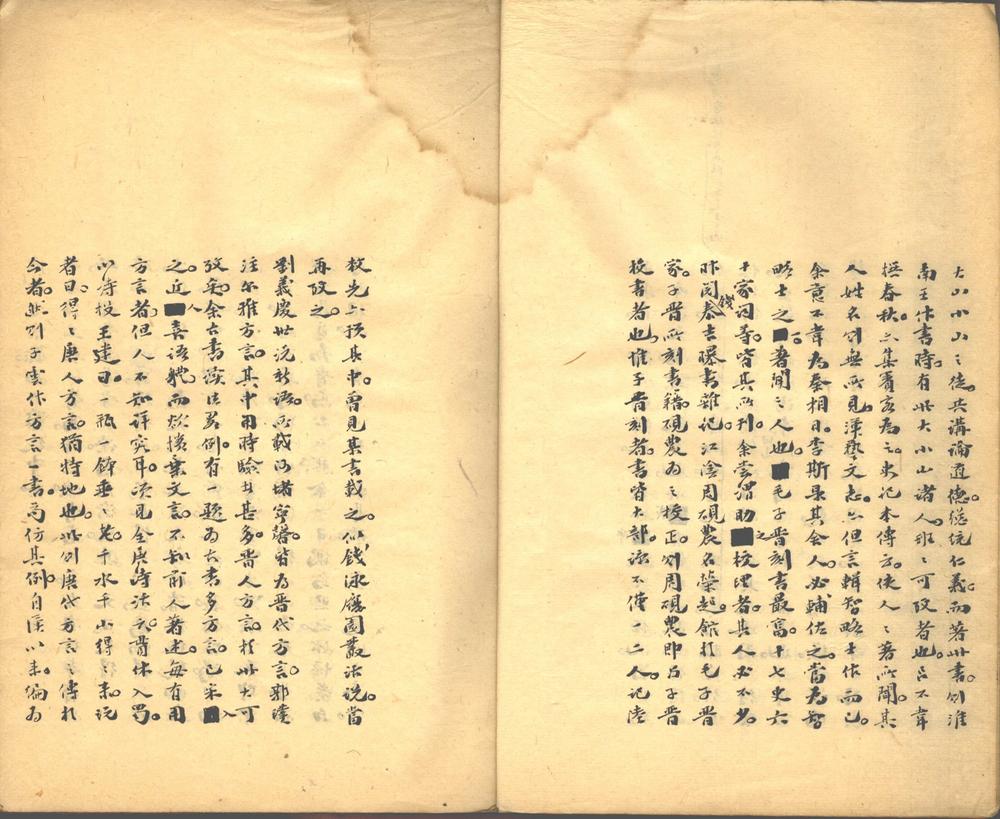 大山小山之徒。共講論道德。總統仁義。而著此書。則淮
南王作書時。有此大小山諸人。班班可攷者也。呂不韋
撰春秋。亦集賓客為之。史記本傳云。使人人著所聞。其
人姓名則無所見。漢藝文志。亦但言輯智略士作而已。
余意不韋為秦相日。李斯是其舍人。必輔佐之。當為智
略士之■著聞之人也。■毛子晉刻書最富。十七史六
十家詞等。皆其所刊。余嘗謂助■之校理者。其人必不少。
昨閱錢泰吉曝書雜記。江陰周硯農名榮起。館於毛子晉
家。子晉所刻書籍。硯農為之校正。則周硯農即占子晉
校書者也。惟子晉刻者。書皆大部。諒不僅一二人。記陸
敕先亦預其中。曾見某書載之。似錢泳履園叢話說。當
再攷之。
劉義慶世說新語。所載阿堵寧馨。皆為晉代方言。郭璞
注爾雅方言。其中用時驗甚多。晉人方言。於此大可
攷矣。余古書疑義例。有一題為古書多方言。已采■入
之。近■人喜語體。而欲擯棄文言。不知前人著述。每有用
方言者。但人不知詳究耳。頃見全唐詩話云。貫休入蜀。
以詩投王建曰。一瓶一鉢垂垂老。千水千山得得來。說
者曰。得得。唐人方言。猶特地也。此則唐代方言之傳於
今者。然則子雲作方言一書。苟仿其例。自漢以來。編為